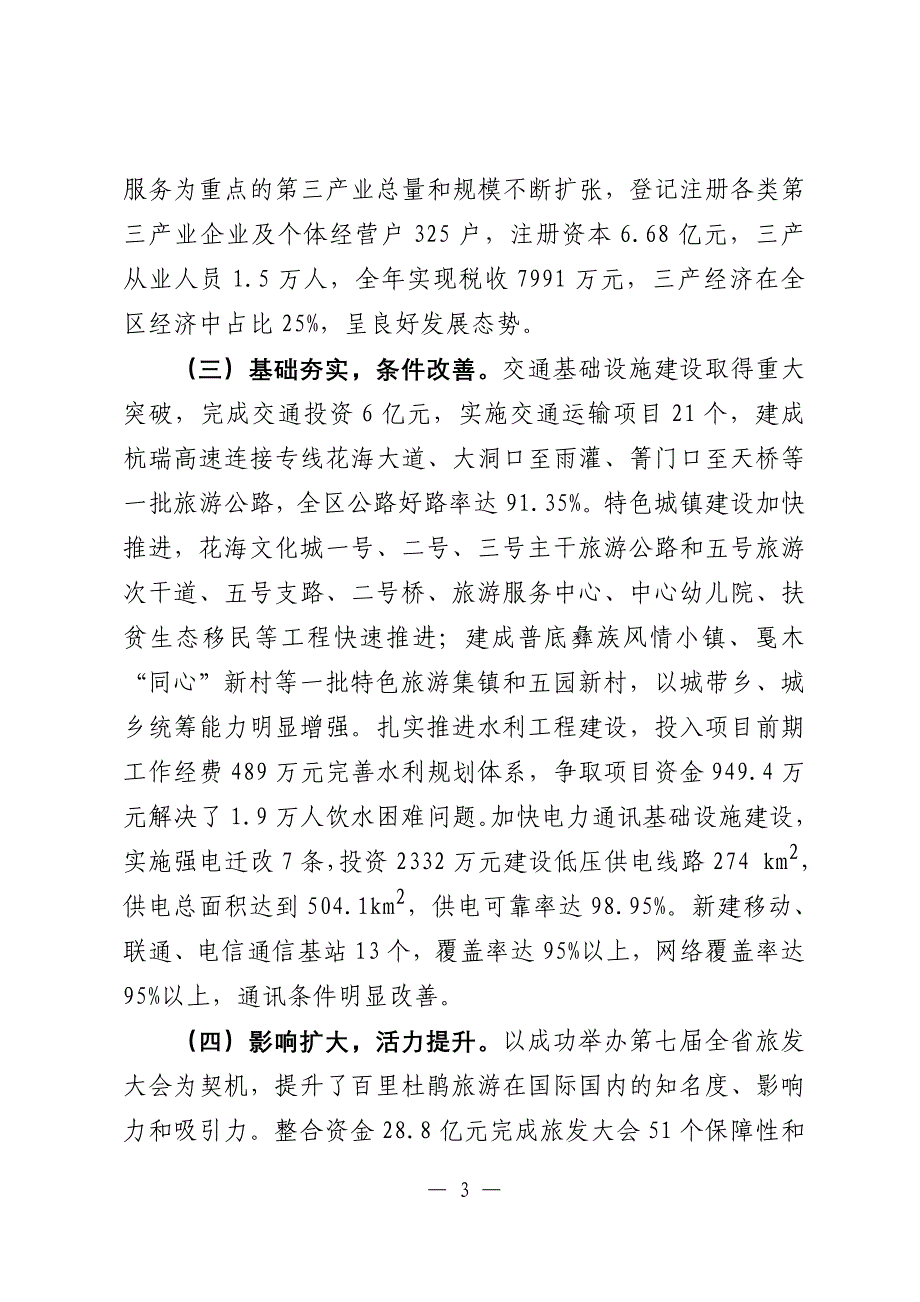 服务为重点的第三产业总量和规模不断扩张，登记注册各类第
三产业企业及个体经营户 325 户，注册资本 6.68 亿元，三产
从业人员 1.5 万人，全年实现税收 7991 万元，三产经济在全
区经济中占比 25%，呈良好发展态势。
（三）基础夯实，条件改善。交通基础设施建设取得重大
突破，完成交通投资 6 亿元，实施交通运输项目 21 个，建成
杭瑞高速连接专线花海大道、大洞口至雨灌、箐门口至天桥等
一批旅游公路，全区公路好路率达 91.35%。特色城镇建设加快
推进，花海文化城一号、二号、三号主干旅游公路和五号旅游
次干道、五号支路、二号桥、旅游服务中心、中心幼儿院、扶
贫生态移民等工程快速推进；建成普底彝族风情小镇、戛木
“同心”新村等一批特色旅游集镇和五园新村，以城带乡、城
乡统筹能力明显增强。扎实推进水利工程建设，投入项目前期
工作经费 489 万元完善水利规划体系，争取项目资金 949.4 万
元解决了 1.9 万人饮水困难问题。加快电力通讯基础设施建设，
实施强电迁改 7 条，投资 2332 万元建设低压供电线路 274 km²，
供电总面积达到 504.1km²，供电可靠率达 98.95%。新建移动、
联通、电信通信基站 13 个，覆盖率达 95%以上，网络覆盖率达
95%以上，通讯条件明显改善。
（四）影响扩大，活力提升。以成功举办第七届全省旅发
大会为契机，提升了百里杜鹃旅游在国际国内的知名度、影响
力和吸引力。整合资金 28.8 亿元完成旅发大会 51 个保障性和
— 3 —